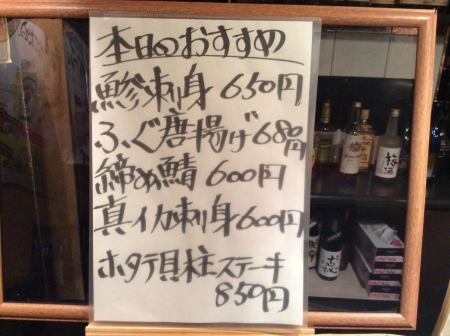 本日のおすすめ
鯵刺身 650円
ふぐ唐揚げ 680円
締め鯖 600円
真イカ刺身 600円
ホタテ貝柱ステーキ
850円
梅酒